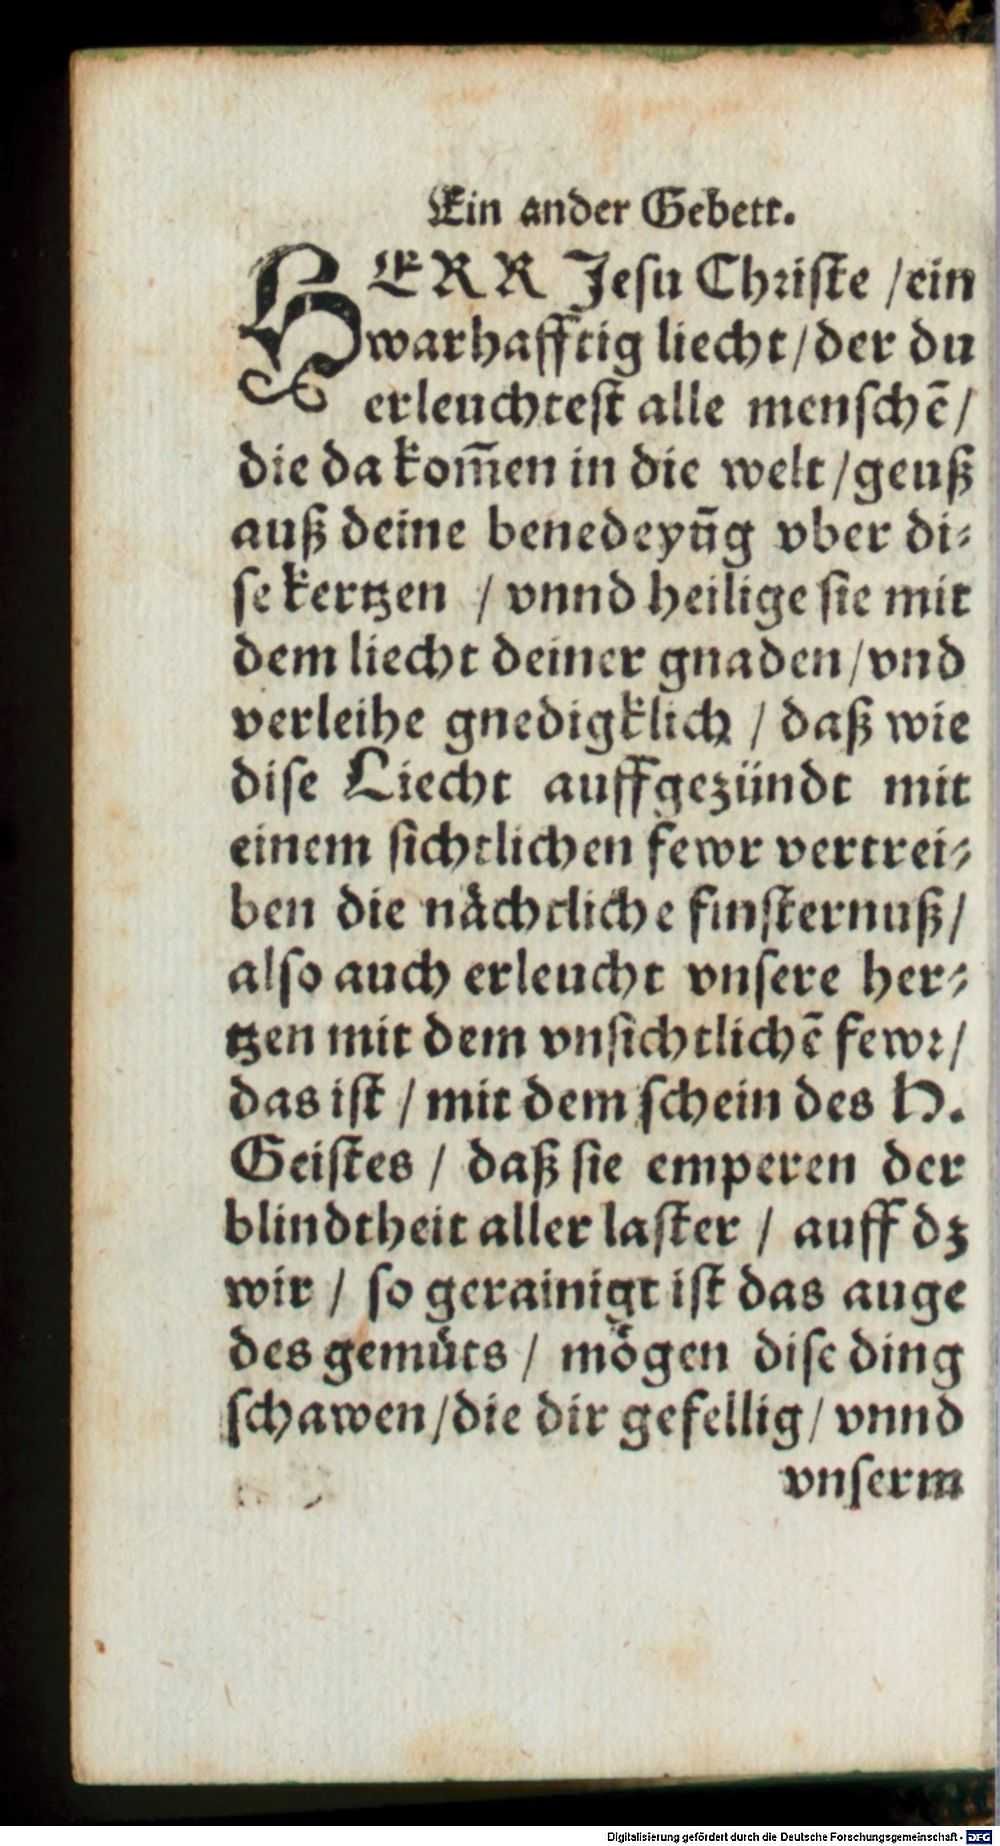 Ein ander Gebett.
HERR Jesu Christe / ein
warhafftig liecht / der du
erleuchtest alle menschē /
die da kom̄en in die welt / geuß
auß deine benedeyūg vber di⸗
se kertzen / vnnd heilige sie mit
dem liecht deiner gnaden / vnd
verleihe gnedigklich / daß wie
dise Liecht auffgezündt mit
einem sichtlichen fewr vertrei⸗
ben die nächtliche finsternuß /
also auch erleucht vnsere her⸗
tzen mit dem vnsichtlichē fewr /
das ist / mit dem schein des H.
Geistes / daß sie emperen der
blindtheit aller laster / auff dz
wir / so gerainigt ist das auge
des gemüts / mögen dise ding
schawen / die dir gefellig / vnnd
vnserm
Digitalisierung gefördert durch die Deutsche Forschungsgemeinschaft - DFG